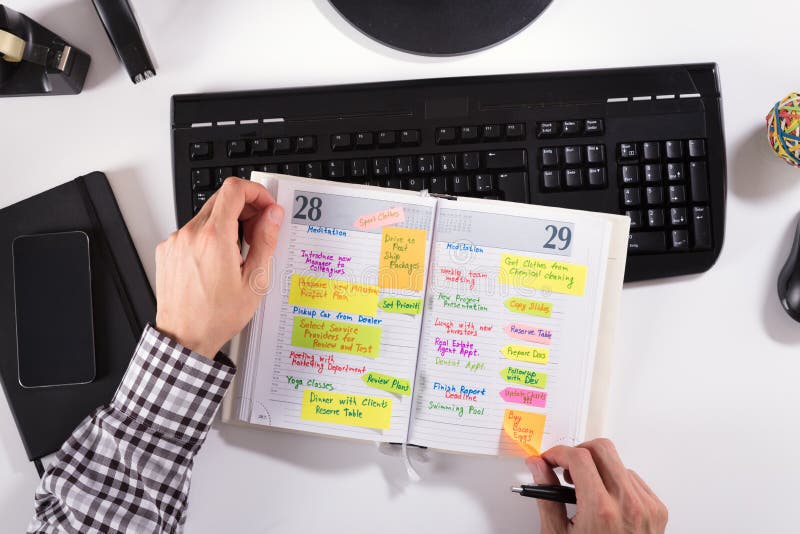 28
Meditation
Sport Clothes
Drive to
Post
Ship
Packages
Introduce new
Manager to
colleagues
Prepare new Milestone
Project Plan
Set Prioriti
Pickup Car from Dealer
Select Service
Providers for
Review and Test
Meeting with
Marketing Department
Review Plans
Yoga Classes
Dinner with Clients
Reserve Table
29
Meditation
Get Clothes from
Chemical cleaning
Weekly team
meeting
New Project
Presentation
Copy Slides
Lunch with new
Investors
Reserve Table
Real Estate
Agent Appt.
Prepare Docs
Dentist Appt.
Followup
with Dev.
Finish Report
Deadline
Update Charts
Swimming Pool
Buy
Bacon
Eggs